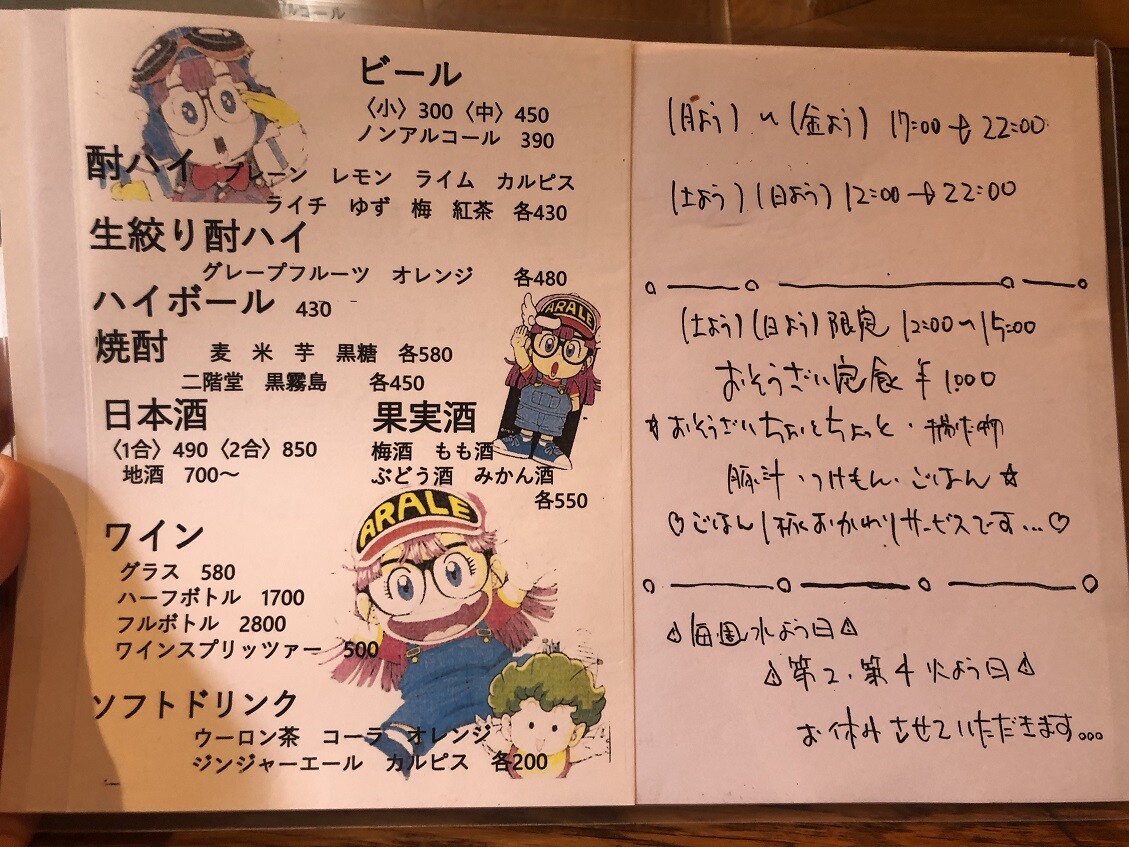 ルコール
ビール
〈小〉300〈中〉450
ノンアルコール 390
酎ハイ プレーン レモン ライム カルピス
ライチ ゆず 梅 紅茶 各430
生絞り酎ハイ
グレープフルーツ オレンジ 各480
ハイボール 430
ARALE
焼酎 麦 米 芋 黒糖 各580
二階堂 黒霧島 各450
日本酒
〈1合〉490〈2合〉850
地酒 700～
果実酒
梅酒 もも酒
ぶどう酒 みかん酒
各550
ARALE
ワイン
グラス 580
ハーフボトル 1700
フルボトル 2800
ワインスプリッツァー 500
ソフトドリンク
ウーロン茶 コーラ オレンジ
ジンジャーエール カルピス 各200
(月よう)〜(金よう) 17:00→22:00
(土よう)(日よう) 12:00→22:00
(土よう)(日よう)限定 12:00〜15:00
おそうざい定食 ¥1.000
☆おそうざいちょいとちょっと・揚げた物
豚汁・つけもん・ごはん☆
♡ごはん1杯おかわりサービスです...♡
⚠毎週水よう日⚠
⚠第2.第4火よう日⚠
お休みさせていただきます...